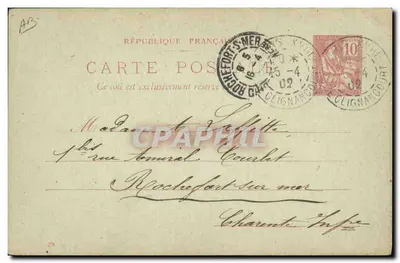 AB
RÉPUBLIQUE FRANÇAISE
CARTE POS
Ce côté est exclusivement réservé
10
ROCHEFORT-S-MER
8 5
16 -4
02
15 -4
02
CLIGNANCOURT
4
02
CLIGNANCOURT
Madame Laffitte
1bis rue Amiral Courbet
Rochefort sur mer
Charente Infre